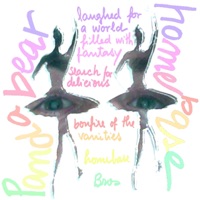 panda bear
laughed for
a world
filled with
fantasy
search for
delicious
home base
bonfire of the
vanities
homebase
Bros